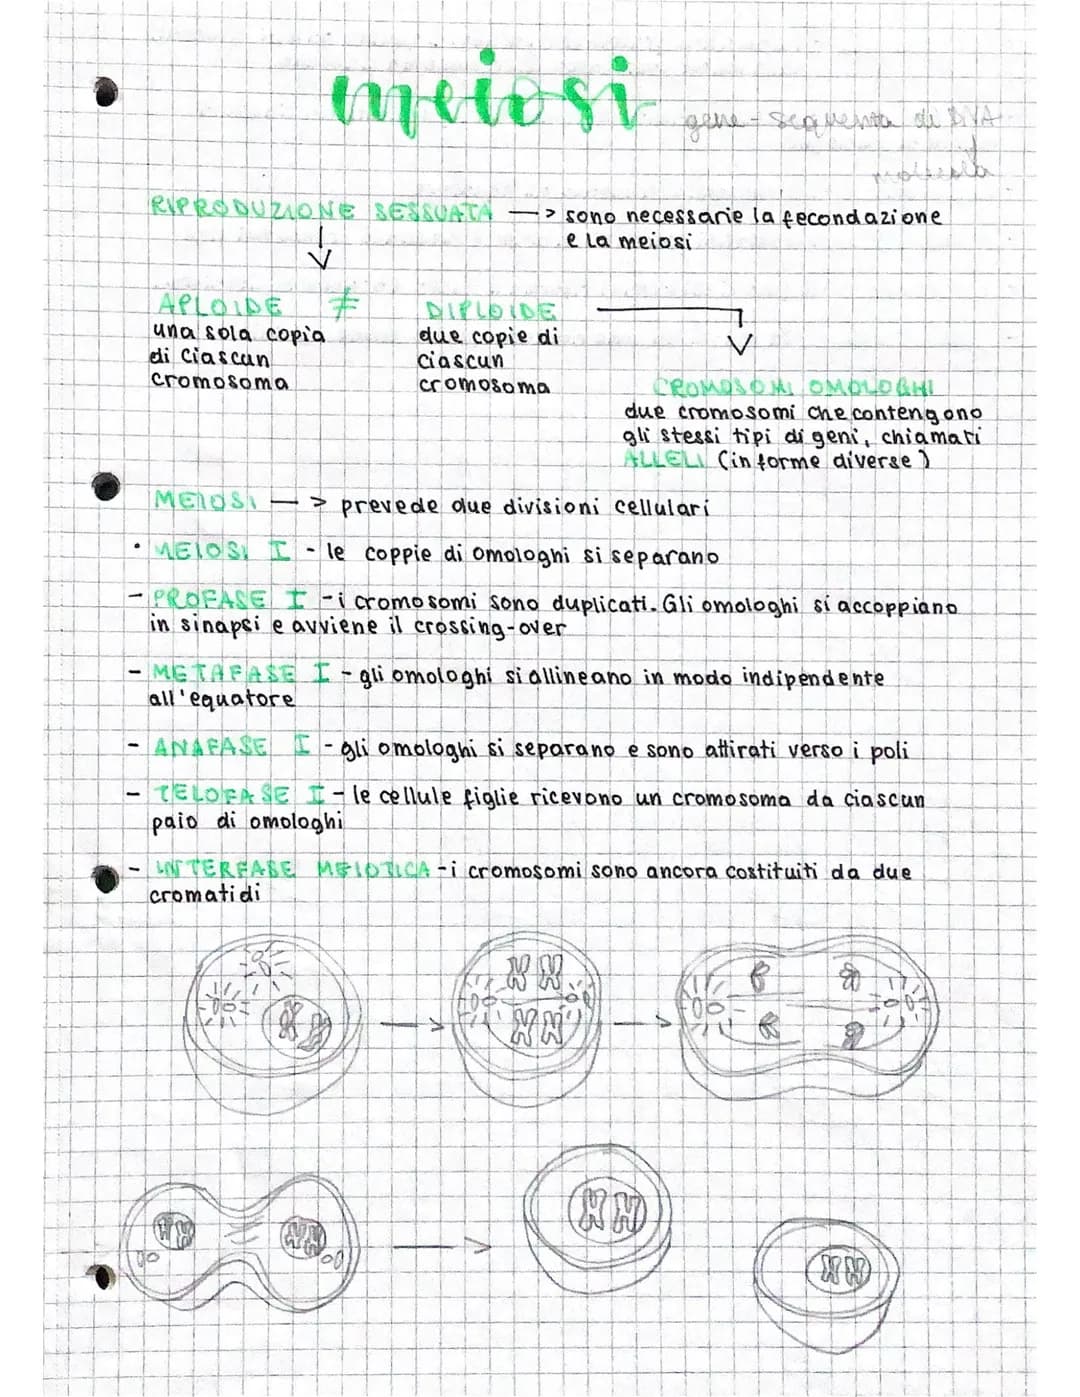 meiosi
gene - sequenza di DNA
RIPRODUZIONE SESSUATA —> sono necessarie la fecondazione
e la meiosi
APLOIDE ≠ DIPLOIDE
una sola copia
di ciascun
cromosoma
due copie di
ciascun
cromosoma
CROMOSOMI OMOLOGHI
due cromosomi che contengono
gli stessi tipi di geni, chiamati
ALLELI (in forme diverse)
MEIOSI —> prevede due divisioni cellulari
• MEIOSI I - le coppie di omologhi si separano
- PROFASE I - i cromosomi sono duplicati. Gli omologhi si accoppiano
in sinapsi e avviene il crossing-over
- METAFASE I - gli omologhi si allineano in modo indipendente
all'equatore
- ANAFASE I - gli omologhi si separano e sono attirati verso i poli
- TELOFASE I - le cellule figlie ricevono un cromosoma da ciascun
paio di omologhi
- INTERFASE MEIOTICA - i cromosomi sono ancora costituiti da due
cromatidi